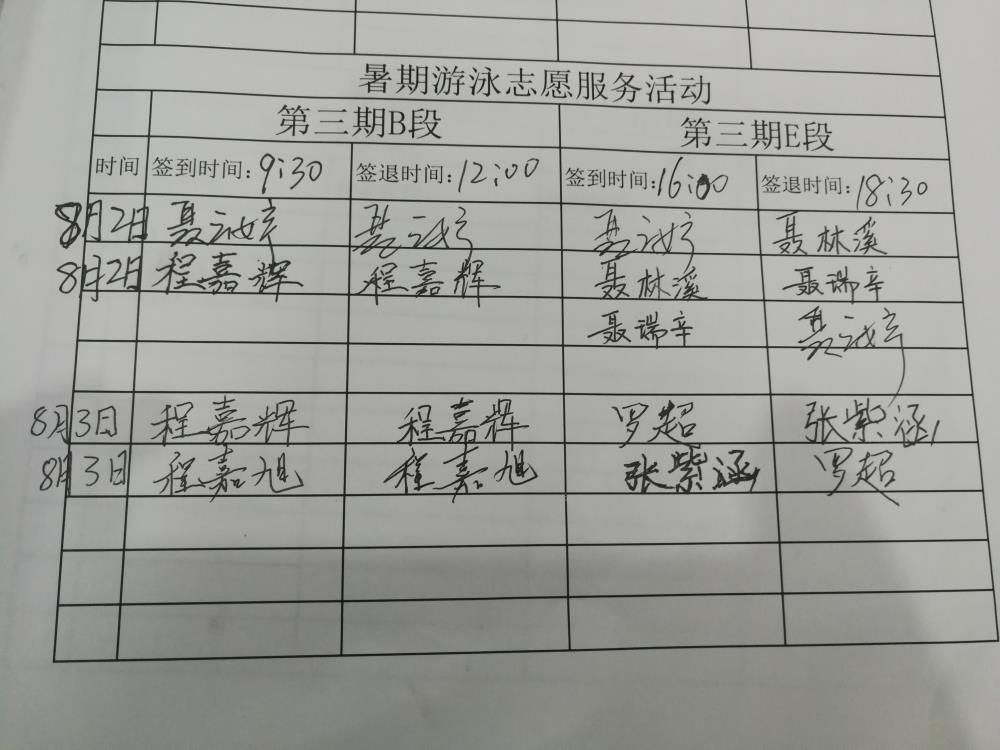 暑期游泳志愿服务活动
第三期B段 第三期E段
时间 签到时间:9:30 签退时间:12:00 签到时间:16:00 签退时间:18:30
8月2日 聂 聂 聂 聂林溪
8月2日 程嘉辉 程嘉辉 聂林溪 聂瑞辛
聂瑞辛 聂
8月3日 程嘉辉 程嘉辉 罗超 张紫涵
8月3日 程嘉旭 程嘉旭 张紫涵 罗超